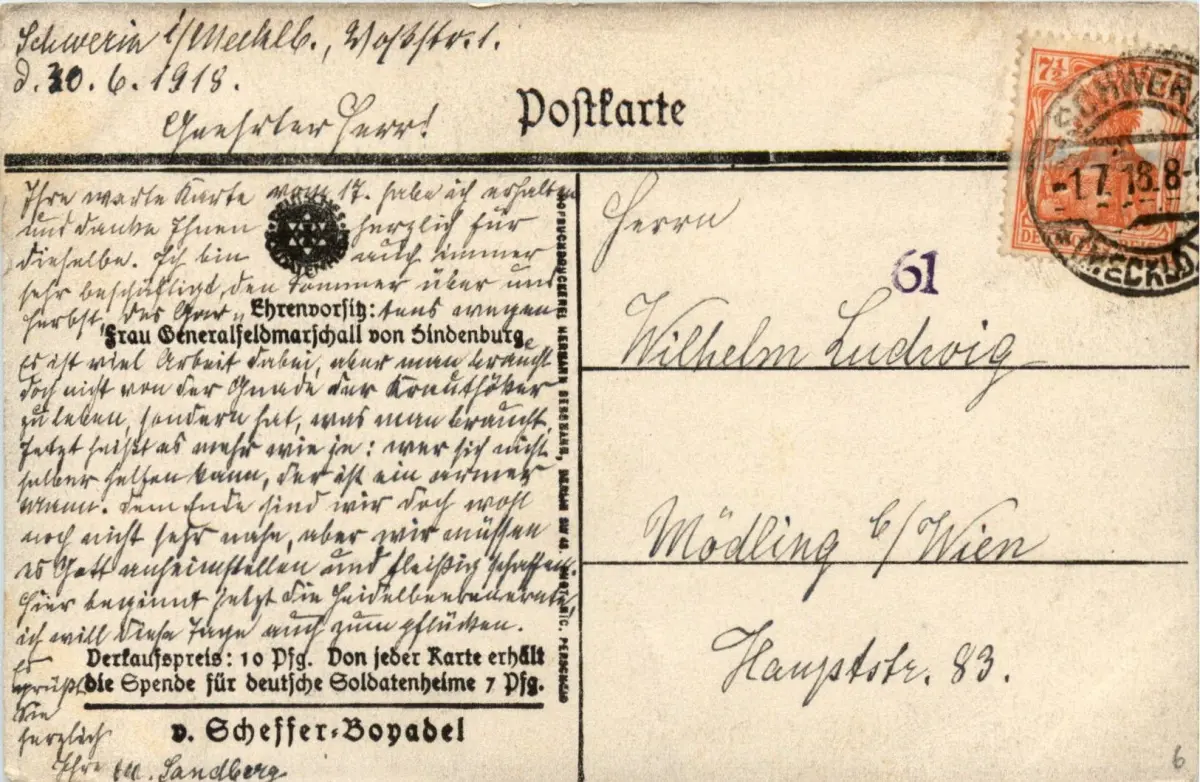 Schwerin i/Mecklb., Voßstr. 1.
d. 30. 6. 1918.
Geehrter Herr!
Postkarte
7½
SCHWERIN
-1.7.18.8-
(MECKLB)
DEUTSCHES REICH
Ihre werte Karte vom 17. habe ich erhalten
und danke Ihnen herzlich für
dieselbe. Ich bin auch immer
sehr beschäftigt, den Sommer über und
Herbst, des wegen
Ehrenvorsitz:
Frau Generalfeldmarschall von Hindenburg
es ist viel Arbeit dabei, aber man braucht
doch nicht von der Gnade der Krauthöker
zu leben, sondern hat, was man braucht.
Jetzt heißt es mehr wie je: wer sich nicht
selber helfen kann, der ist ein armer
Mann. Dem Ende sind wir doch wohl
noch nicht sehr nahe, aber wir müssen
es Gott anheimstellen und fleißig schaffen.
Hier beginnt jetzt die Heidelbeerenernte,
ich will diese Tage auch zum pflücken.
Es
grüßt
Sie
herzlich
Ihre M. Sandberg
Verkaufspreis: 10 Pfg. Von jeder Karte erhält
die Spende für deutsche Soldatenheime 7 Pfg.
v. Scheffer-Boyadel
HOFBUCHDRUCKEREI HERMANN BERGMANN, BERLIN SW 48. PHOT. NIC. PERSCHEID
Herrn
61
Wilhelm Ludwig
Mödling b/Wien
Hauptstr. 83.
6